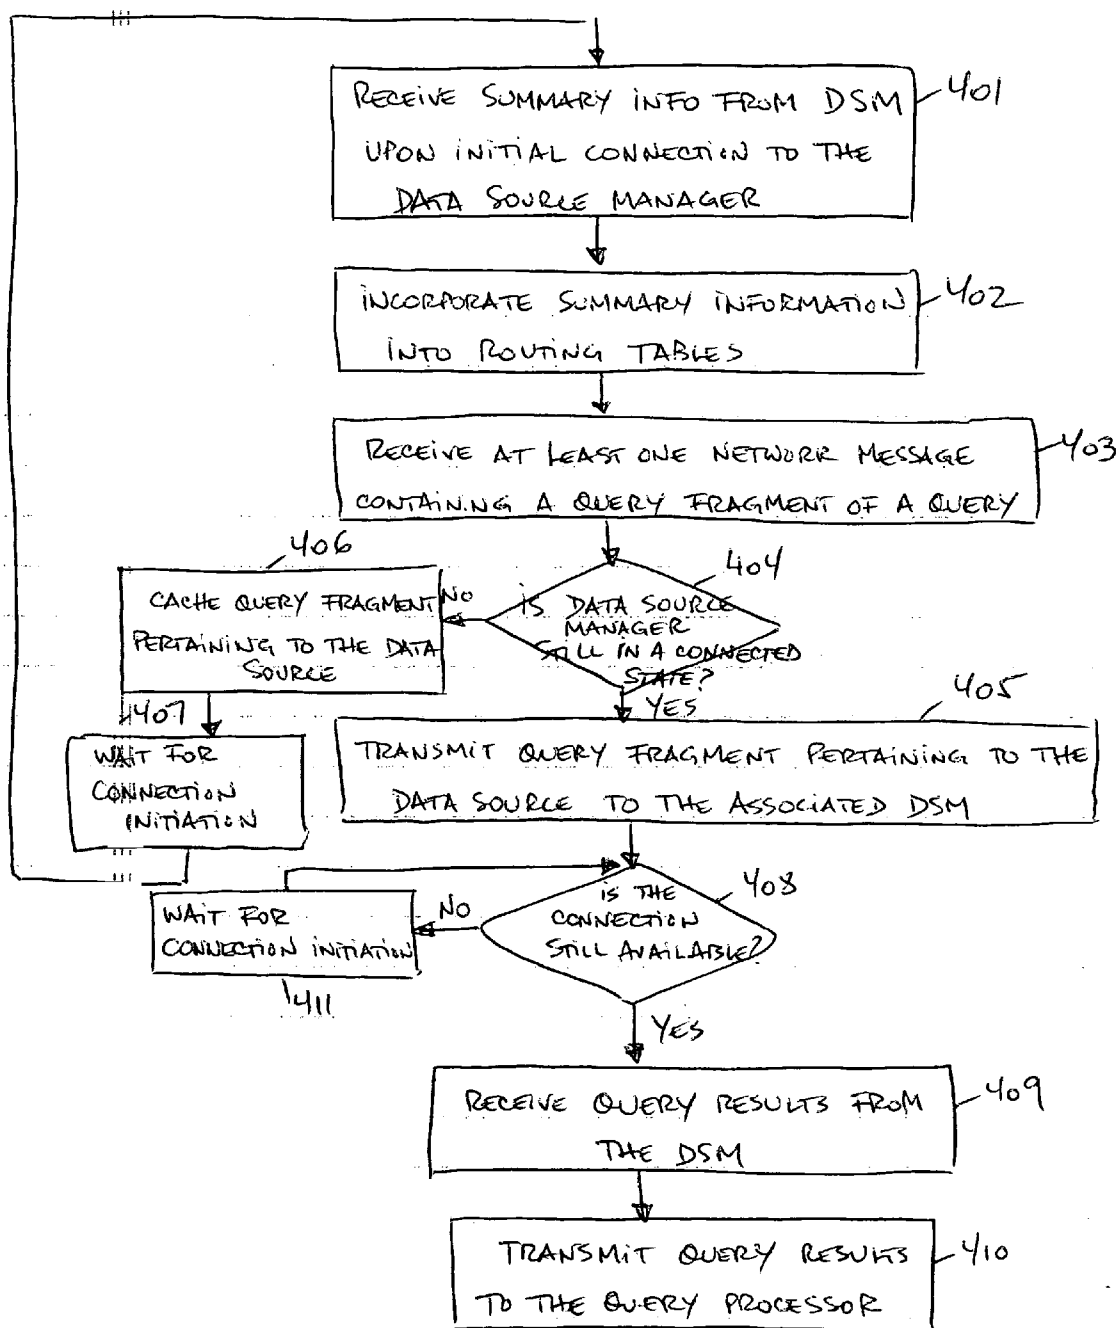 RECEIVE SUMMARY INFO FROM DSM
UPON INITIAL CONNECTION TO THE
DATA SOURCE MANAGER
401
INCORPORATE SUMMARY INFORMATION
INTO ROUTING TABLES
402
RECEIVE AT LEAST ONE NETWORK MESSAGE
CONTAINING A QUERY FRAGMENT OF A QUERY
403
406
CACHE QUERY FRAGMENT
PERTAINING TO THE DATA
SOURCE
NO
404
IS DATA SOURCE
MANAGER
STILL IN A CONNECTED
STATE?
YES
405
407
WAIT FOR
CONNECTION
INITIATION
TRANSMIT QUERY FRAGMENT PERTAINING TO THE
DATA SOURCE TO THE ASSOCIATED DSM
408
IS THE
CONNECTION
STILL AVAILABLE?
NO
WAIT FOR
CONNECTION INITIATION
411
YES
RECEIVE QUERY RESULTS FROM
THE DSM
409
TRANSMIT QUERY RESULTS
TO THE QUERY PROCESSOR
410